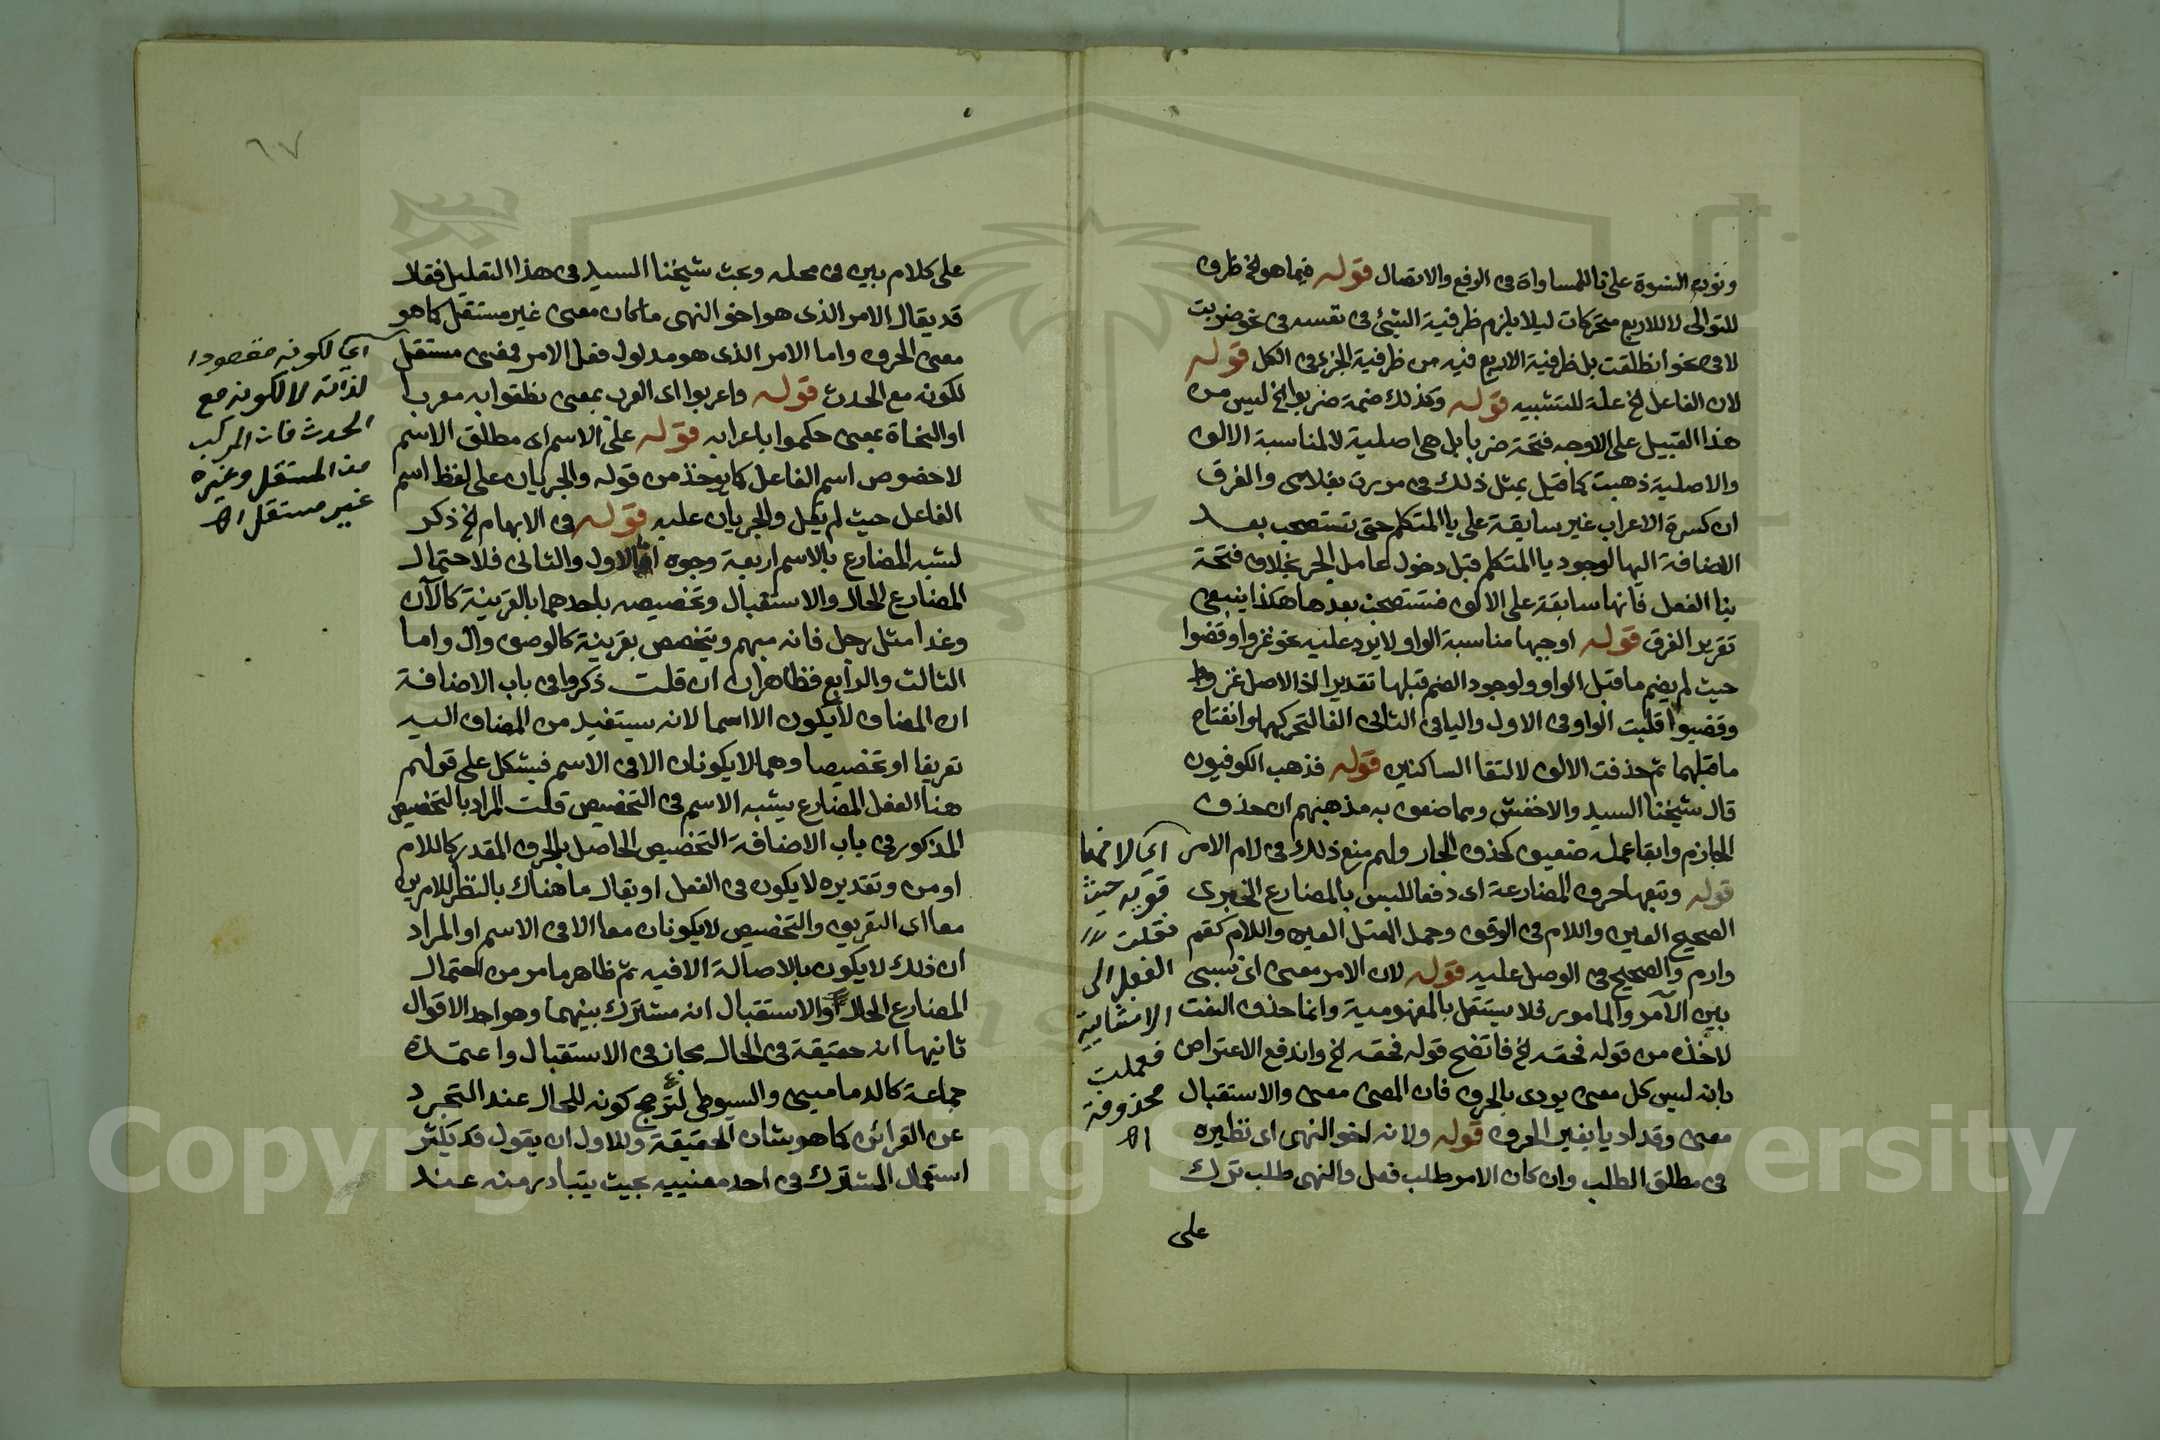 ونون النسوة على تا للمساواة فى الرفع والاتصال قوله فيما هو الخ ظرف
للتوالى لا للاربع متحركات ليلا يلزم ظرفية الشئ فى نفسه فى نحو ضربت
لا فى نحو انطلقت بل ظرفية الاربع فيه من ظرفية الجزء فى الكل قوله
لان الفاعل الخ علة للتشبيه قوله وكذلك ضمة ضربوا الخ ليس من
هذا القبيل على الاوجه فتحة ضربا بل هى اصلية لا لمناسبة الالف
والاصلية ذهبت كما قيل بمثل ذلك فى مررت بغلامى والفرق
ان كسرة الاعراب غير سابقة على يا المتكلم حتى تستصحب بعد
الاضافة اليها لوجود يا المتكلم قبل دخول عامل الجر بخلاف فتحة
بنا الفعل فانها سابقة على الالف فتستصحب بعدها هكذا ينبغى
تقرير الفرق قوله اوجبها مناسبة الواو لا يرد عليه نحو غزوا وقضوا
حيث لم يضم ما قبل الواو لوجود الضم قبلها تقديرا اذ الاصل غزووا
وقضيوا قلبت الواو فى الاول واليا فى الثانى الفا لتحركهما وانفتاح
ما قبلهما ثم حذفت الالف لالتقا الساكنين قوله فذهب الكوفيون
قال شيخنا السيد والاخفش ومما ضعف به مذهبهم ان حذف
الجازم وابقا عمله ضعيف كحذف الجار ولهم منع ذلك فى لام الامر
قوله وتبعها حرف المضارعة اى دفعا للبس بالمضارع الخبرى
الصحيح العين واللام فى الوقف وحمل المعتل العين واللام كقم
وارم والصحيح فى الوصل عليه قوله لان الامر معنى اى نسبى
بين الآمر والمامور فلا يستقل بالمفهومية وانما حذف النعت
لاخذه من قوله فحقه الخ فاتضح قوله فحقه الخ واندفع الاعتراض
بانه ليس كل معنى يودى بالحرف فان المضى معنى والاستقبال
معنى وقد اديا بغير الحرف قوله ولانه اخو النهى اى نظيره
فى مطلق الطلب وان كان الامر طلب فعل والنهى طلب ترك
على
اى لانها
قوية حيث
نقلت
الفعل الى
الانشائية
فعملت
محذوفة
اه
٦٧
على كلام بين فى محله وبحث شيخنا السيد فى هذا التعليل فقال
قد يقال الامر الذى هو اخو النهى ما كان معنى غير مستقل كما هو
معنى الحرف واما الامر الذى هو مدلول فعل الامر فمعنى مستقل
لكونه مع الحدث قوله واعربوا اى العرب بمعنى نطقوا به معربا
او النحاة بمعنى حكموا باعرابه قوله على الاسم اى مطلق الاسم
لا خصوص اسم الفاعل كما يوخذ من قوله والجريان على لفظ اسم
الفاعل حيث لم يقل والجريان عليه قوله فى الابهام الخ ذكر
لشبه المضارع بالاسم اربعة وجوه اما الاول والثانى فلاحتمال
المضارع الحال والاستقبال وتخصيصه باحدهما بالقرينة كالآن
وغدا مثل رجل فانه مبهم ويتخصص بقرينة كالوصف وال واما
الثالث والرابع فظاهران ان قلت ذكروا فى باب الاضافة
ان المضاف لا يكون الا اسما لانه يستفيد من المضاف اليه
تعريفا او تخصيصا وهما لا يكونان الا فى الاسم فيشكل على قولهم
هنا الفعل المضارع يشبه الاسم فى التخصيص قلت المراد بالتخصيص
المذكور فى باب الاضافة التخصيص الحاصل بالحرف المقدر كاللام
او من وتقديره لا يكون فى الفعل او يقال ما هناك بالنظر للامرين
معا اى التعريف والتخصيص لا يكونان معا الا فى الاسم او المراد
ان ذلك لا يكون بالاصالة الا فيه ثم ظاهر ما مر من احتمال
المضارع الحال والاستقبال انه مشترك بينهما وهو احد الاقوال
ثانيها انه حقيقة فى الحال مجاز فى الاستقبال واعتمده
جماعة كالدمامينى والسيوطى لترجح كونه للحال عند التجرد
عن القرائن كما هو شان الحقيقة وللاول ان يقول قد يكثر
استعمال المشترك فى احد معنييه بحيث يتبادر منه عند
اى لكونه مقصودا
لذاته لا لكونه مع
الحدث فان المركب
من المستقل وغيره
غير مستقل اه
Copyright © King Saud University